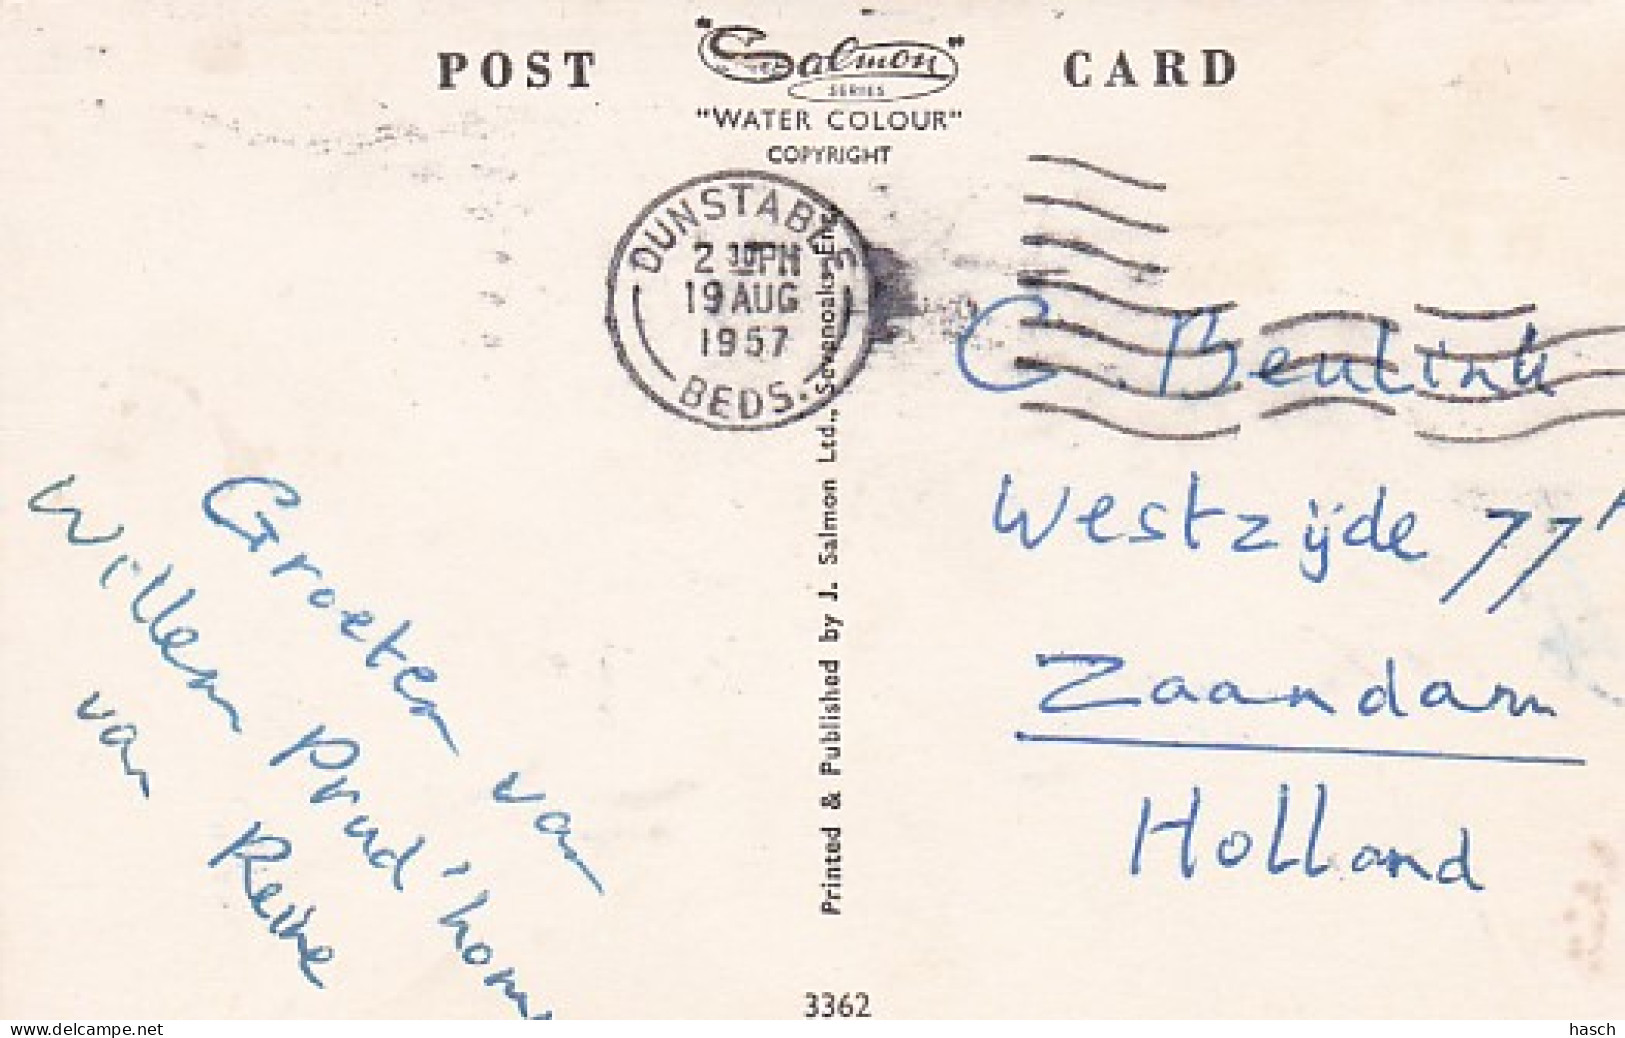 POST "Salmon" CARD
SERIES
"WATER COLOUR"
COPYRIGHT
DUNSTABLE
2 30 PM
19 AUG
1957
BEDS.
Printed & Published by J. Salmon Ltd., Sevenoaks, Eng.
C. Beulink
Westzijde 77
Zaandam
Holland
Groeten van
Willem Prud'hom
van
3362
© delcampe.net
hasch